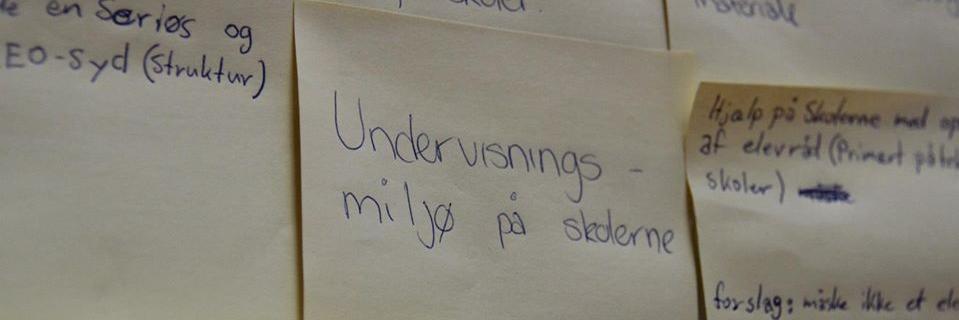 en Seriøs og
EO-Syd (Struktur)
Undervisnings -
miljø på skolerne
materiale
Hjælp på Skolerne med op
af elevråd (Primært på
skoler)
forslag: måske ikke et